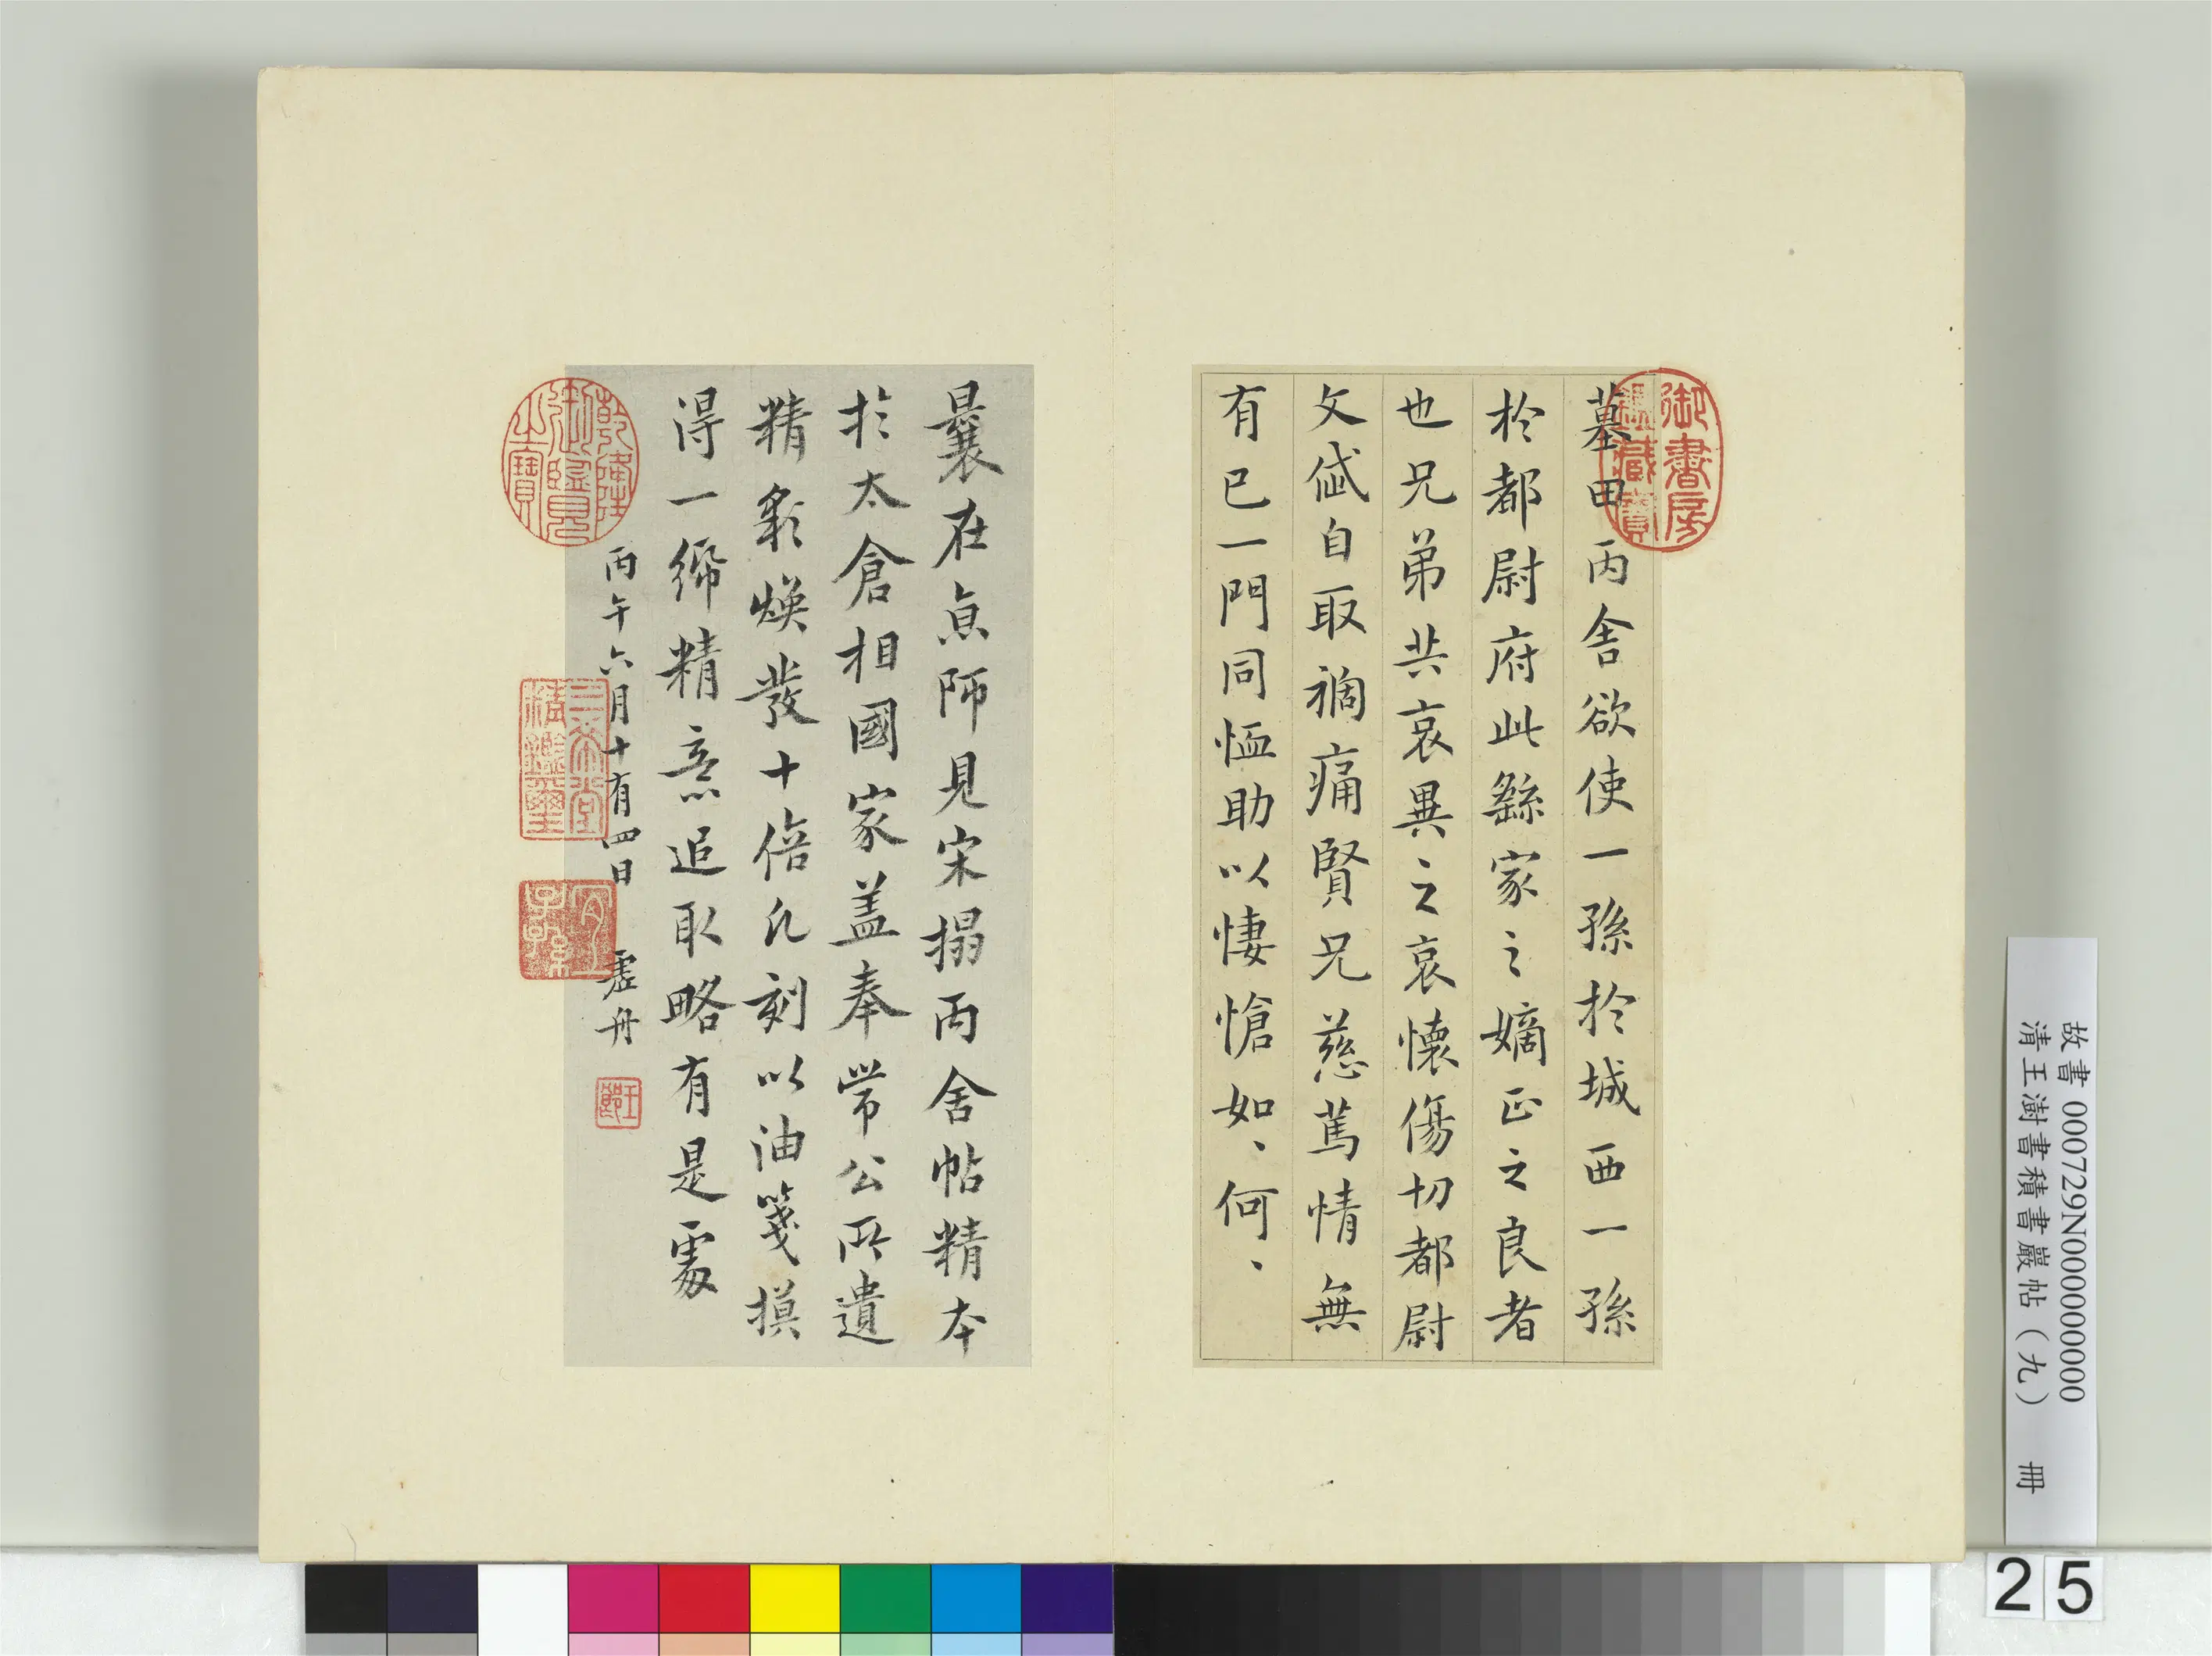 御書房
鑑藏寶
墓田丙舍欲使一孫於城西一孫
於都尉府此繇家之嫡正之良者
也兄弟共哀異之哀懷傷切都尉
文岱自取禍痛賢兄慈篤情無
有已一門同恤助以悽愴如、何、
曩在京師見宋搨丙舍帖精本
於太倉相國家蓋奉常公所遺
精彩煥發十倍凡刻以油箋摸
得一紙精意追取略有是處
丙午六月十有四日 虛舟
乾隆御覽之寶
三希堂精鑑璽
宜子孫
故書 000729N000000000
清王澍書積書巖帖（九） 冊
25